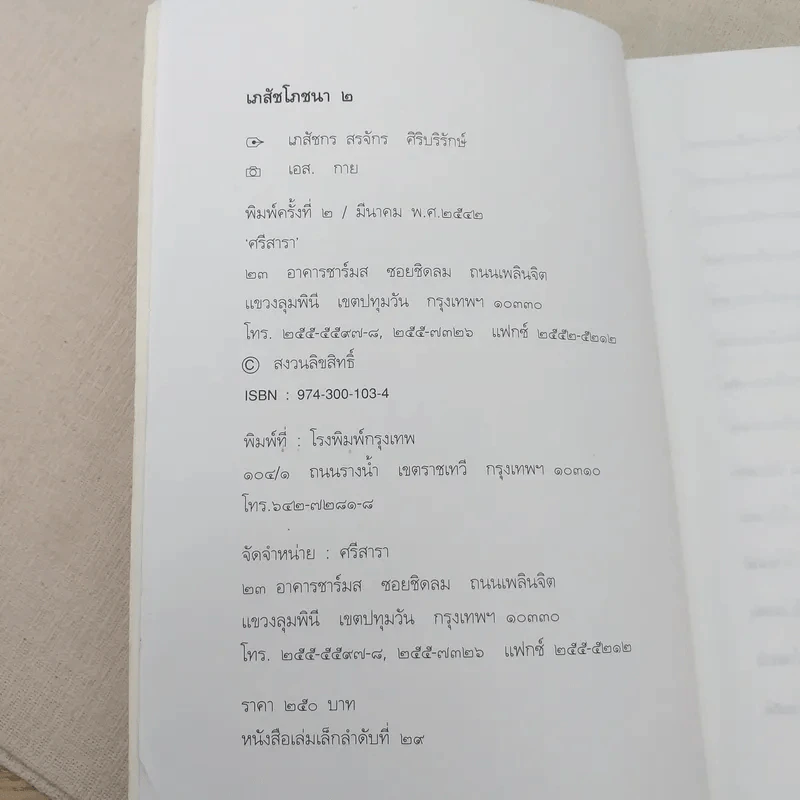 เภสัชโภชนา ๒
เภสัชกร สรจักร ศิริบริรักษ์
เอส. กาย
พิมพ์ครั้งที่ ๒ / มีนาคม พ.ศ.๒๕๔๒
'ศรีสารา'
๒๓ อาคารชาร์มส ซอยชิดลม ถนนเพลินจิต
แขวงลุมพินี เขตปทุมวัน กรุงเทพฯ ๑๐๓๓๐
โทร. ๒๕๕-๕๕๙๗-๘, ๒๕๕-๗๓๒๖ แฟกซ์ ๒๕๕๒-๕๒๑๒
© สงวนลิขสิทธิ์
ISBN : 974-300-103-4
พิมพ์ที่ : โรงพิมพ์กรุงเทพ
๑๐๔/๑ ถนนรางน้ำ เขตราชเทวี กรุงเทพฯ ๑๐๓๑๐
โทร.๖๔๒-๗๒๘๑-๘
จัดจำหน่าย : ศรีสารา
๒๓ อาคารชาร์มส ซอยชิดลม ถนนเพลินจิต
แขวงลุมพินี เขตปทุมวัน กรุงเทพฯ ๑๐๓๓๐
โทร. ๒๕๕-๕๕๙๗-๘, ๒๕๕-๗๓๒๖ แฟกซ์ ๒๕๕-๕๒๑๒
ราคา ๒๕๐ บาท
หนังสือเล่มเล็กลำดับที่ ๒๙